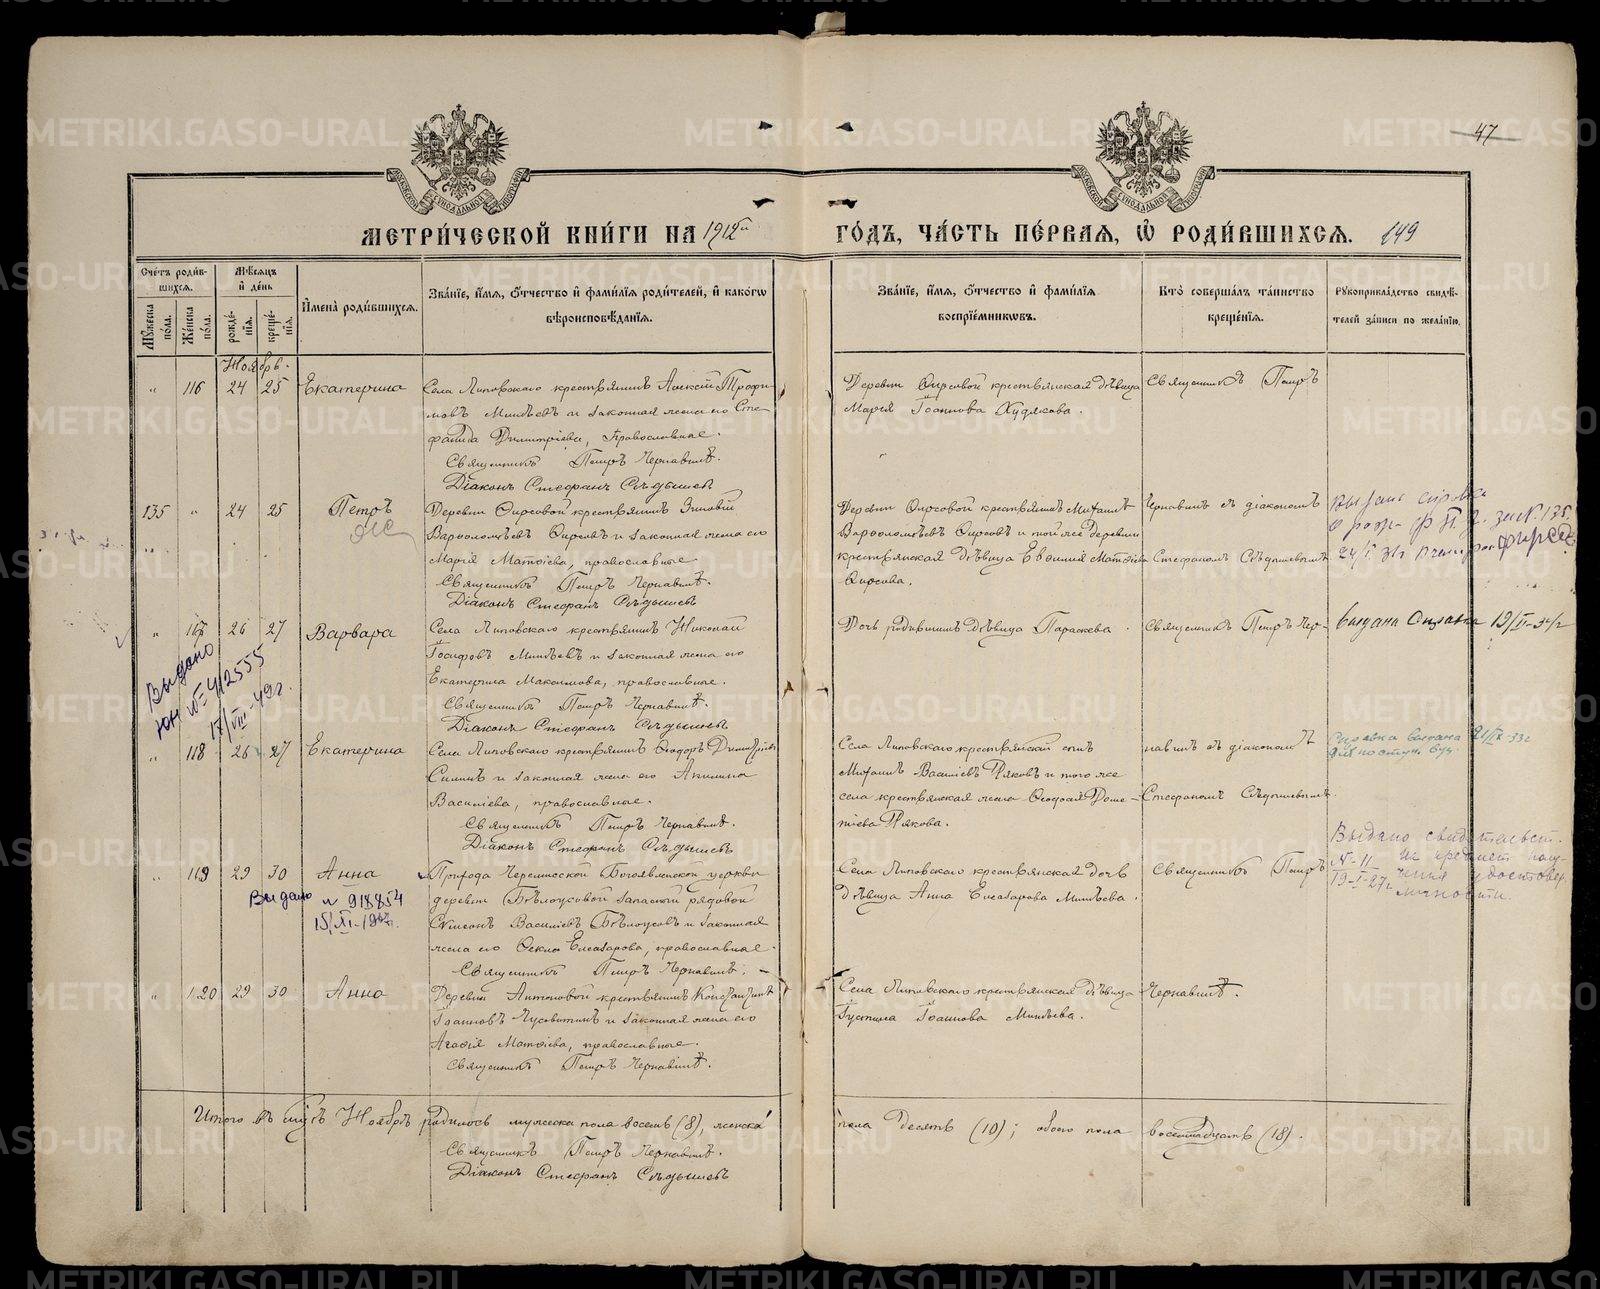 47
МЕТРИ́ЧЕСКОЙ КНИ́ГИ НА 1912й
ГО́ДЪ, ЧА́СТЬ ПЕ́РВАЯ, Ѡ҆ РОДИ́ВШИХСЯ. 149
Сче́тъ роди́в-
шихся.
Мѣ́сяцъ
и҆ де́нь
Имена̀ роди́вшихся.
Зва́нїе, и҆́мя, ѻ҆́тчество и҆ фами́лїя роди́телей, и҆ како́гѡ
вѣроисповѣ́данїя.
Зва́нїе, и҆́мя, ѻ҆́тчество и҆ фами́лїя
воспрїе́мникѡвъ.
Кто̀ соверша́лъ та́инство
креще́нїя.
Рꙋкоприкла́дство свидѣ́-
телей за́писи по жела́нїю.
Мꙋ́жеска по́ла.
Же́нска по́ла.
рожде́-нїя.
креще́-нїя.
Ноябрь.
" 116 24 25 Екатерина
Села Липовскаго крестьянинъ Алексей Трофи-
мовъ Минѣевъ и законная жена его Сте-
фанида Димитріева, православные.
Священникъ Петръ Чернавинъ.
Діаконъ Стефанъ Сѣдышевъ
Деревни Ѳирсовой крестьянская дѣвица
Марія Іоаннова Худякова.
Священникъ Петръ
135 " 24 25 Петръ
Деревни Ѳирсовой крестьянинъ Зиновій
Варѳоломѣевъ Ѳирсовъ и законная жена его
Марія Матѳіева, православные
Священникъ Петръ Чернавинъ.
Діаконъ Стефанъ Сѣдышевъ
Деревни Ѳирсовой крестьянинъ Михаилъ
Варѳоломѣевъ Ѳирсовъ и той же деревни
крестьянская дѣвица Евфимія Матѳіева
Ѳирсова.
Чернавинъ съ діакономъ
Стефаномъ Сѣдышевымъ
" 117 26 27 Варвара
Села Липовскаго крестьянинъ Николай
Іосифовъ Минѣевъ и законная жена его
Екатерина Максимова, православные.
Священникъ Петръ Чернавинъ.
Діаконъ Стефанъ Сѣдышевъ
Дочь родившихъ дѣвица Параскева.
Священникъ Петръ Чер-
выдана Справка
Выдано
№ 412555
IX/VIII-49г.
" 118 26 27 Екатерина
Села Липовскаго крестьянинъ Ѳеодоръ Димитріевъ
Силинъ и законная жена его Акилина
Василіева, православные.
Священникъ Петръ Чернавинъ.
Діаконъ Стефанъ Сѣдышевъ
Села Липовскаго крестьянскій сынъ
Михаилъ Василіевъ Пяковъ и того же
села крестьянская жена Ѳеодосія Доме-
тіева Пякова.
навинъ съ діакономъ
Стефаномъ Сѣдышевымъ.
Справка выдана 21/IX-33г
" 119 29 30 Анна
Выдано № 918854
Прихода Черемисской Богоявленской церкви
деревни Бѣлоусовой запасный рядовой
Сѵмеонъ Василіевъ Бѣлоусовъ и законная
жена его Ѳекла Елеазарова, православные.
Священникъ Петръ Чернавинъ.
Села Липовскаго крестьянская дочь
дѣвица Анна Елеазарова Минѣева.
Священникъ Петръ
Выдано свидетельст.
№-11 на предмет полу-
19-I-27г чения удостовер.
личности.
" 120 29 30 Анна
Деревни Антоновой крестьянинъ Константинъ
Іоанновъ Чусовитинъ и законная жена его
Агаѳія Матѳіева, православные.
Священникъ Петръ Чернавинъ.
Села Липовскаго крестьянская дѣвица
Іустина Іоаннова Минѣева.
Чернавинъ.
Итого въ Ноябрѣ родилось мужеска пола восемь (8), женска
пола десять (10); обоего пола восемнадцать (18).
Священникъ Петръ Чернавинъ.
Діаконъ Стефанъ Сѣдышевъ
METRIKI.GASO-URAL.RU